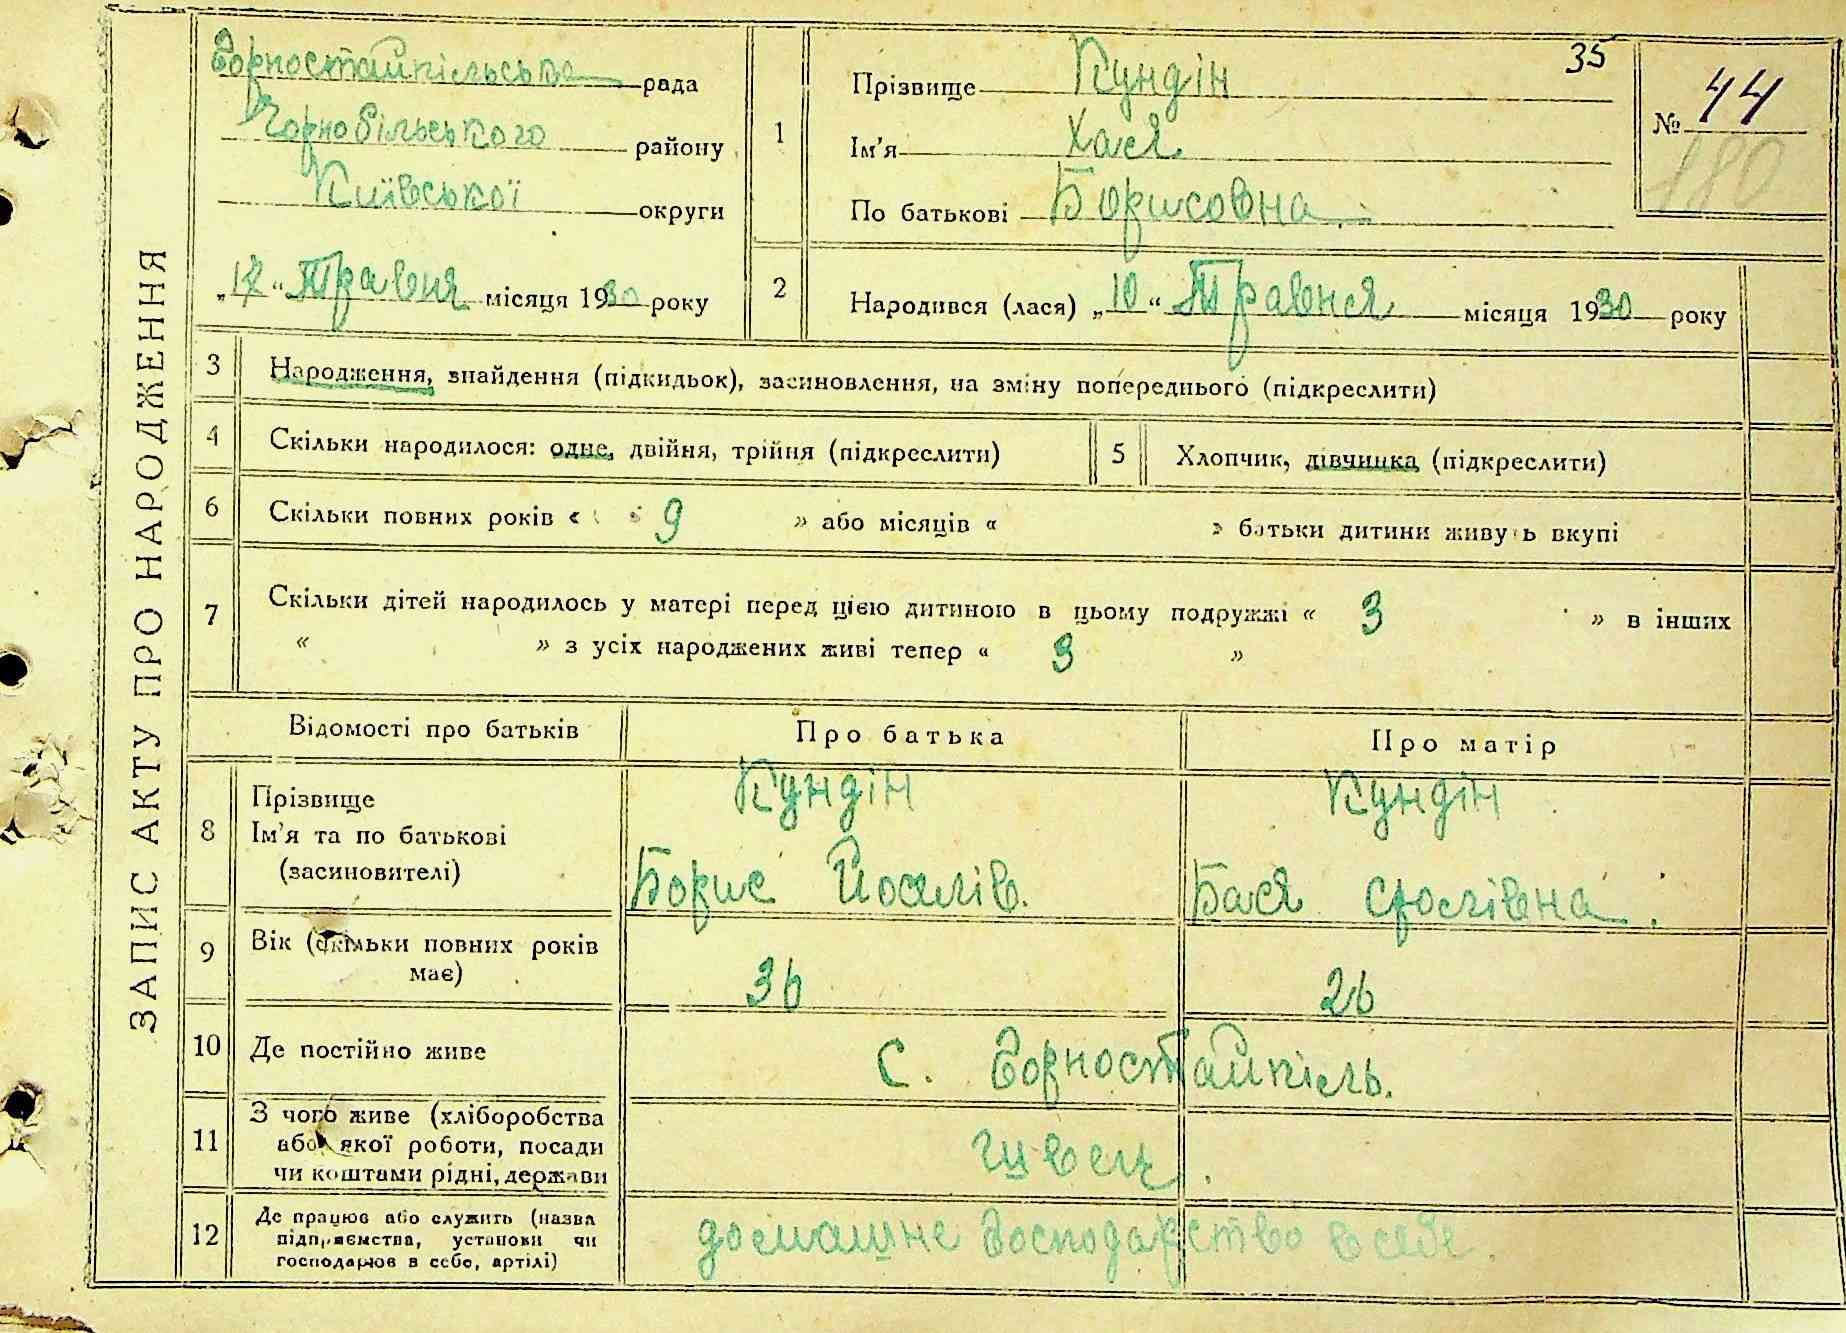 ЗАПИС АКТУ ПРО НАРОДЖЕННЯ
Горностайпільська рада
Чорнобільського району
Київської округи
„17“ Травня місяця 1930 року
35
№ 44
180
1 Прізвище Кундін
Ім'я Хася
По батькові Борисовна
2 Народився (лася) „10“ Травня місяця 1930 року
3 Народження, знайдення (підкидьок), засиновлення, на зміну попереднього (підкреслити)
4 Скільки народилося: одне, двійня, трійня (підкреслити)
5 Хлопчик, дівчинка (підкреслити)
6 Скільки повних років « 9 » або місяців « » батьки дитини живуть вкупі
7 Скільки дітей народилось у матері перед цією дитиною в цьому подружжі « 3 » в інших
« » з усіх народжених живі тепер « 3 »
Відомості про батьків Про батька Про матір
8 Прізвище Кундін Кундін
Ім'я та по батькові
(засиновителі) Борис Йоселів. Бася Сролівна.
9 Вік (скільки повних років
має) 36 26
10 Де постійно живе С. Горностайпіль.
11 З чого живе (хліборобства
або якої роботи, посади
чи коштами рідні, держави швець.
12 Де працює або служить (назва
підприємства, установи чи
господарює в себе, артілі) домашнє господарство в себе.